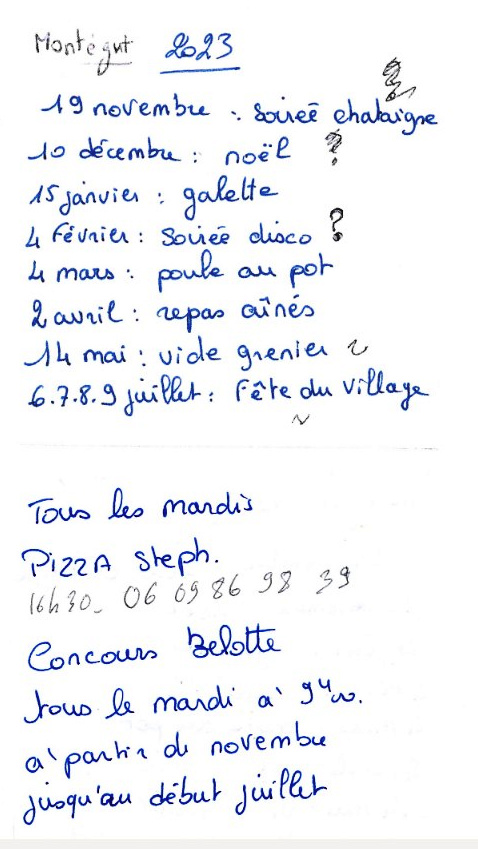 Montégut 2023
19 novembre : Soireé chataigne
10 décembre : noël ?
15 janvier : galette
4 Février : Soirée disco ?
4 mars : poule au pot
2 avril : repas aînés
14 mai : vide grenier
6.7.8.9 juillet : Fête du village
Tous les mardis
PizzA Steph.
16h30_ 06 09 86 98 39
Concours Belotte
tous le mardi à
à partir de novembre
jusqu'au début juillet